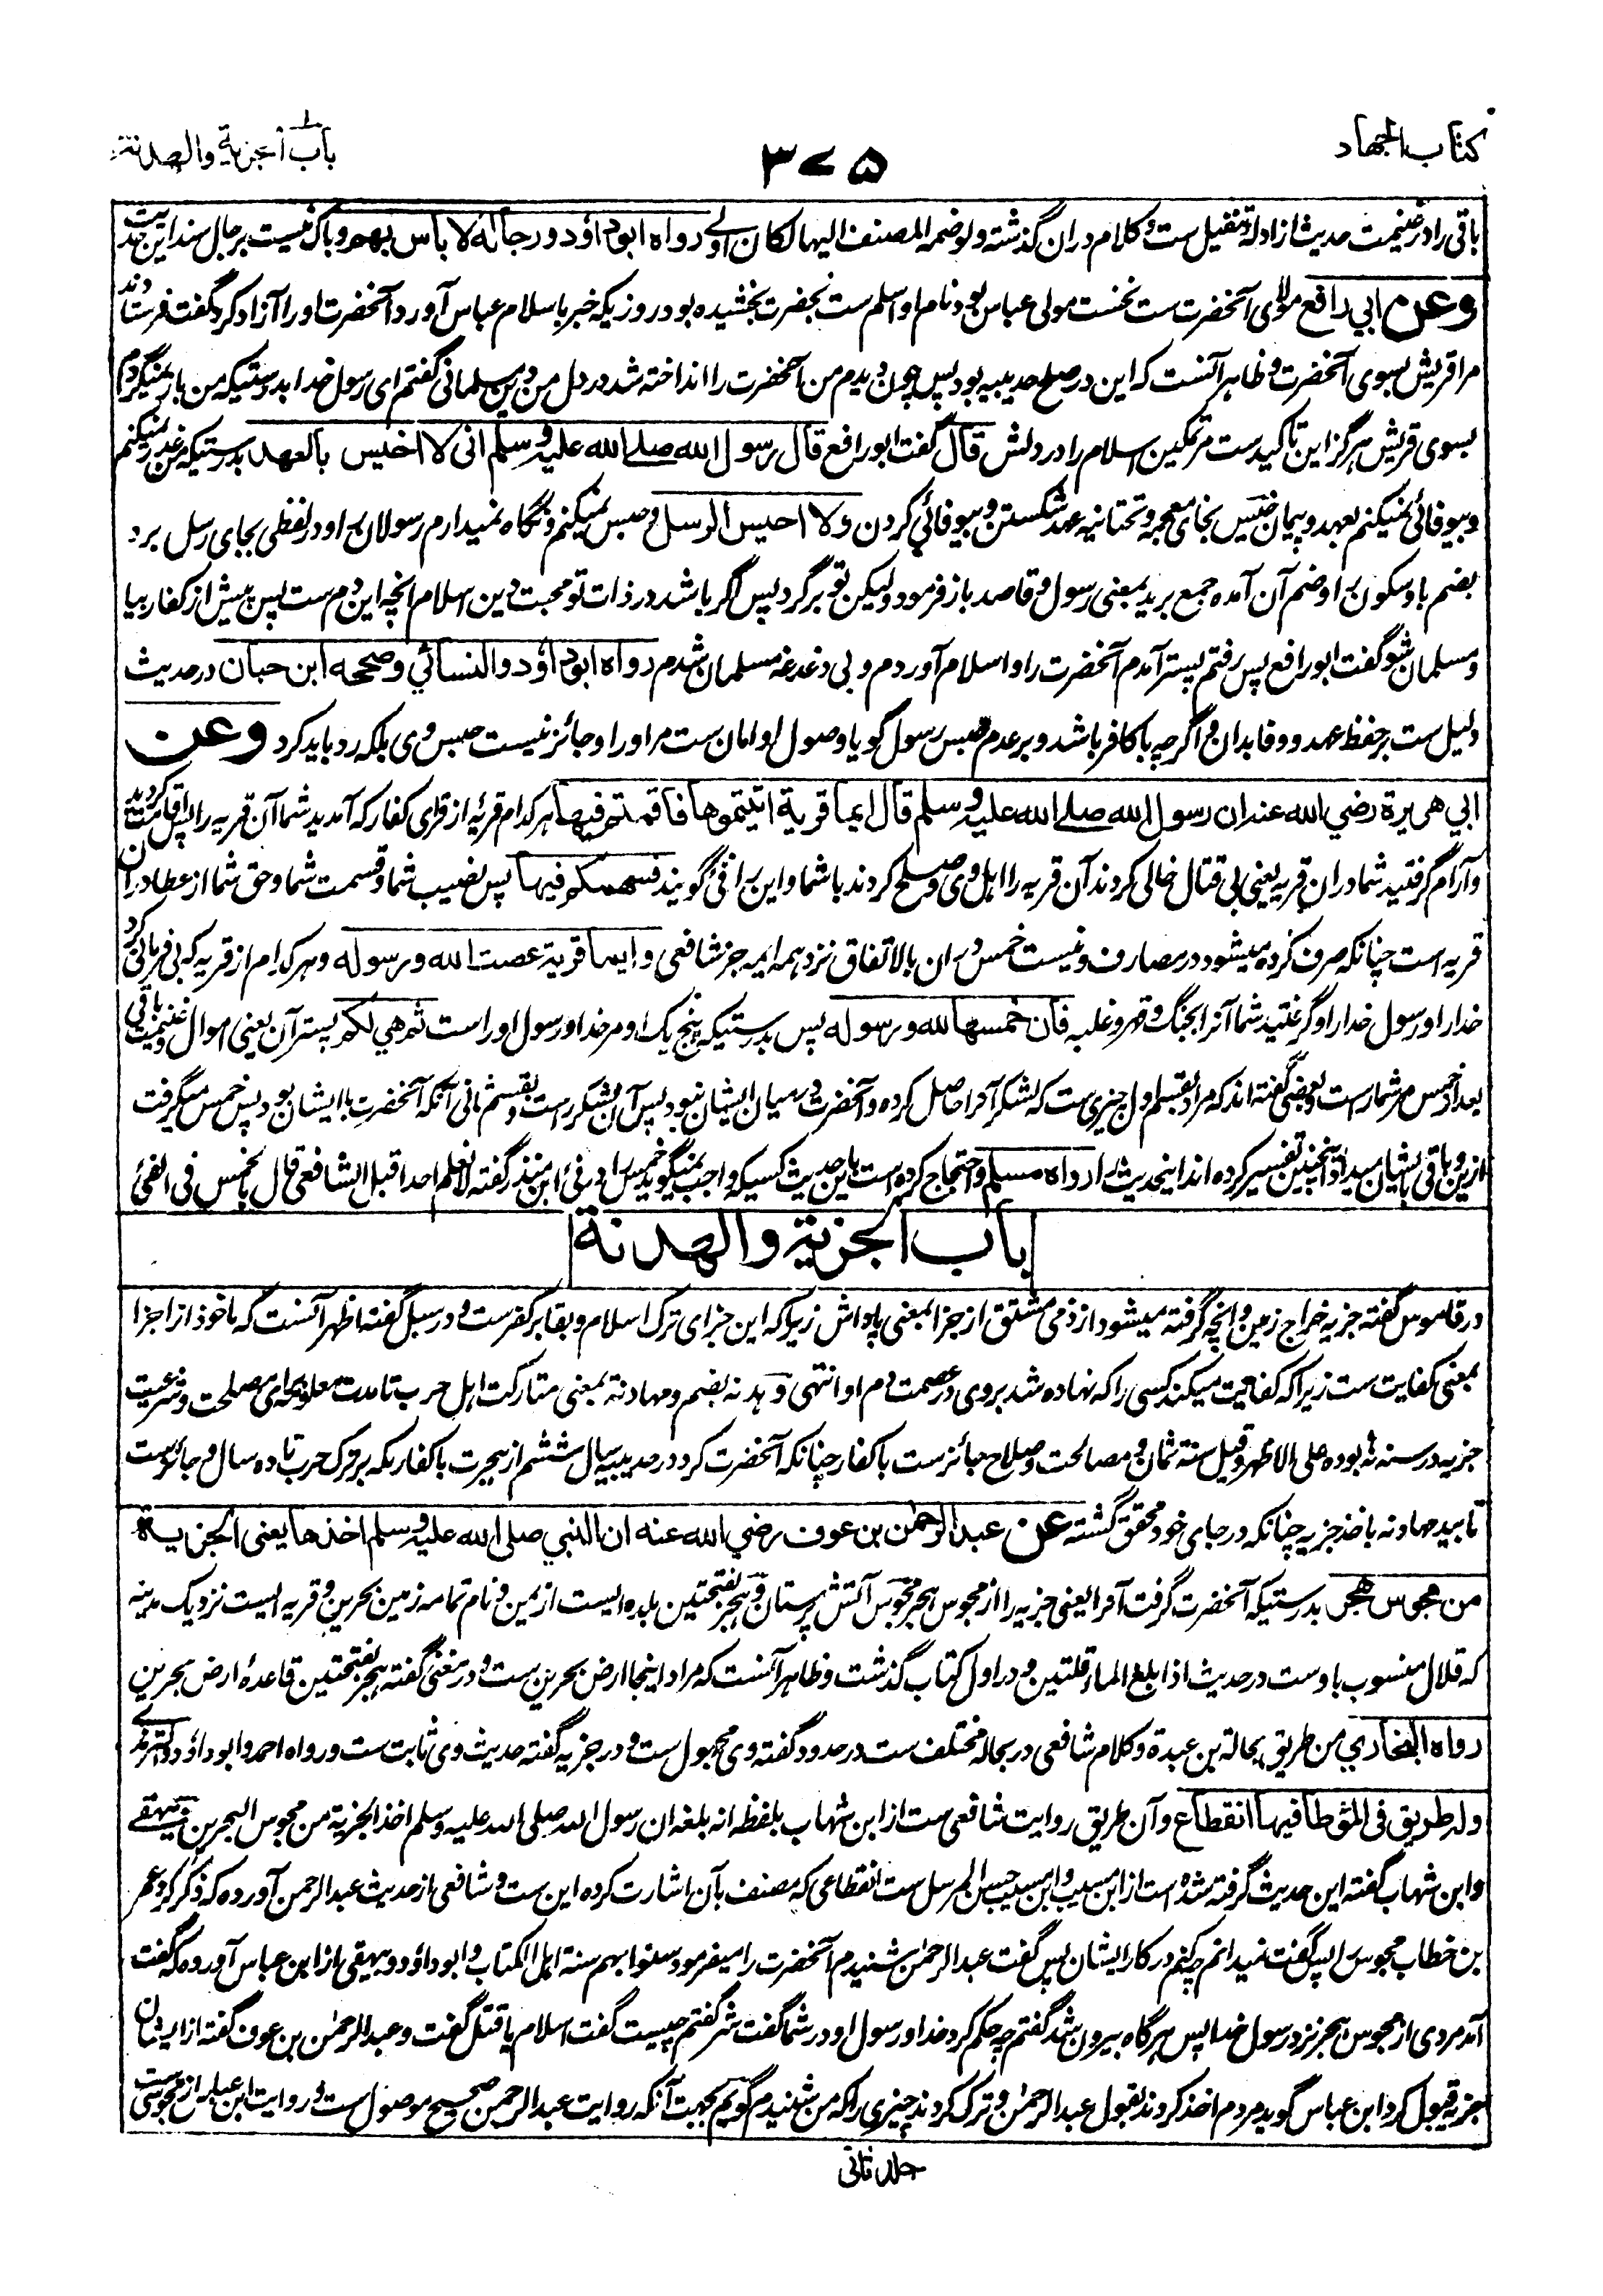 کتاب الجهاد
۳۷۵
باب الجزية والهدنة
باقی را در غنیمت حدیث از ادلهٔ تنفیل ست و کلام دران گذشته ولوضمه المصنف الیها لکان اولے رواه ابوداؤد ورجاله لا بأس بهم و باک نیست برجال سند این حدیث
وعن ابي رافع مولای آنحضرت ست نخست مولی عباس بود نام او اسلم ست بحضرت بخشیده بود روزیکه خبر باسلام عباس آورد آنحضرت او را آزاد کرد گفت فرستادند
مرا قریش بسوی آنحضرت و ظاهر آنست که این در صلح حدیبیه بود پس چون دیدم من آنحضرت را انداخته شد در دل من دین مسلمانی گفتم ای رسول خدا بدرستیکه من باز نمیگردم
بسوی قریش هرگز این تاکیدست مر تمکین اسلام را در دلش قال گفت ابو رافع قال رسول الله صلے الله علیه وسلم انی لا اخیس بالعهد بدرستیکه من غدر نمیکنم
و بیوفائی نمیکنم بعهد و پیمان خیس بخای معجمه و تحتانیه عهد شکستن و بیوفائی کردن ولا احبس الرسل و حبس نمیکنم و نگاه نمیدارم رسولان را و در لفظی بجای رسل برد
بضم با و سکون را و ضم آن آمده جمع برید بمعنی رسول و قاصد باز فرمود ولیکن تو برگرد پس اگر باشد در ذات تو محبت دین اسلام انچه این دم ست پس پیش از کفار بیا
و مسلمان شو گفت ابو رافع پس رفتم پستر آمدم آنحضرت را و اسلام آوردم و بی دغدغه مسلمان شدم رواه ابوداؤد والنسائي وصححه ابن حبان در حدیث
دلیل ست بر حفظ عهد و وفا بدان و اگر چه با کافر باشد و بر عدم حبس رسول گویا وصول او امان ست مر او را و جائز نیست حبس وی بلکه رد باید کرد وعن
ابي هريرة رضي الله عنه ان رسول الله صلے الله علیه وسلم قال ايما قرية اتيتموها فاقمتم فيها هر کدام قریه از قرای کفار که آمدید شما آن قریه را پس اقامت کردید
و آرام گرفتید شما دران قریه یعنی بی قتال خالی کردند آن قریه را اهل وی و صلح کردند با شما و این را فئ گویند فسهمكم فيها پس نصیب شما و قسمت شما و حق شما از عطا دران
قریه است چنانکه صرف کرده میشود در مصارف و نیست خمس دران بالاتفاق نزد همه ایمه جز شافعی وايما قرية عصت الله ورسوله و هر کدام از قریه که بی فرمانی کرد
خدا را و رسول خدا را و گرفتید شما آنرا بجنگ و قهر و غلبه فان خمسها لله ورسوله پس بدرستیکه پنج یک او مر خدا و رسول او راست ثم هي لكم پستر آن یعنی اموال غنیمت و باقی
بعد از خمس مر شما راست و بعضی گفته اند که مراد بقسم اول چیزی ست که لشکر آنرا حاصل کرده و آنحضرت در میان ایشان نبود پس آن لشکر راست و بقسم ثانی آنکه آنحضرت با ایشان بود پس خمس میگرفت
ازین و باقی بایشان میداد همچنین تفسیر کرده اند این حدیث را رواه مسلم و احتجاج کرده است باین حدیث کسیکه واجب نمیگوید خمس را در فئ ابن منذر گفته لا نعلم احدا قبل الشافعی قال بالخمس فی الفئ
باب الجزية والهدنة
در قاموس گفته جزیه خراج زمین و انچه گرفته میشود از ذمی مشتق از جزا بمعنی پاداش زیرا که این جزای ترک اسلام و بقا بر کفرست و در سبل گفته اظهر آنست که ماخوذ از اجزا
بمعنی کفایت ست زیرا که کفایت میکند کسی را که نهاده شد بر وی در عصمت دم او انتهی و هدنه بضم و مهادنة بمعنی متارکت اهل حرب تا مدت معلومه برای مصلحت و شرعیت
جزیه در سنه نه بوده علی الاظهر و قیل سنة ثمان و مصالحت و صلاح جائزست با کفار چنانکه آنحضرت کرد در حدیبیه سال ششم از هجرت با کفار مکه بر ترک حرب تا ده سال و جائزست
تابید مهادنه باخذ جزیه چنانکه در جای خود محقق گشته عن عبد الرحمن بن عوف رضي الله عنه ان النبي صلى الله عليه وسلم اخذها يعنى الجزية
من مجوس هجر بدرستیکه آنحضرت گرفت آنرا یعنی جزیه را از مجوس هجر مجوس آتش پرستان و هجر بفتحتین بلده ایست از یمن و نام تمامه زمین بحرین و قریه ایست نزدیک مدینه
که قلال منسوب باوست در حدیث اذا بلغ الماء قلتین و در اول کتاب گذشت و ظاهر آنست که مراد اینجا ارض بحرین ست و در مغنی گفته هجر بفتحتین قاعدهٔ ارض بحرین
رواه البخاري من طریق بجالة بن عبدة و کلام شافعی در بجاله مختلف ست در حدود گفته وی مجهول ست و در جزیه گفته حدیث وی ثابت ست و رواه احمد و ابوداؤد والترمذے
وله طريق فى الموطا فيها انقطاع و آن طریق روایت شافعی ست از ابن شهاب بلفظ انه بلغه ان رسول الله صلی الله علیه وسلم اخذ الجزیة من مجوس البحرین بیهقے
و ابن شهاب گفته این حدیث گرفته شده است از ابن مسیب و ابن مسیب حسن المرسل ست انقطاعی که مصنف بآن اشارت کرده این ست و شافعی از حدیث عبد الرحمن آورده که ذکر کرد عمر
بن خطاب مجوس را پس گفت نمیدانم چه کنم در کار ایشان پس گفت عبد الرحمن شنیدم آنحضرت را میفرمود سنوا بهم سنة اهل الکتاب و ابوداؤد و بیهقی از ابن عباس آورده که گفت
آمد مردی از مجوس هجر نزد رسول خدا پس هرگاه بیرون شد گفتم چه حکم کرد خدا و رسول او در شما گفت شر گفتم چیست گفت اسلام یا قتل گفت و عبد الرحمن بن عوف گفته از ایشان
جزیه قبول کرد ابن عباس گوید مردم اخذ کردند بقول عبد الرحمن و ترک کردند چیزی را که من شنیدم گویم بجهت آنکه روایت عبد الرحمن صحیح موصول ست و روایت ابن عباس از مجوسی ست
جلد ثانی